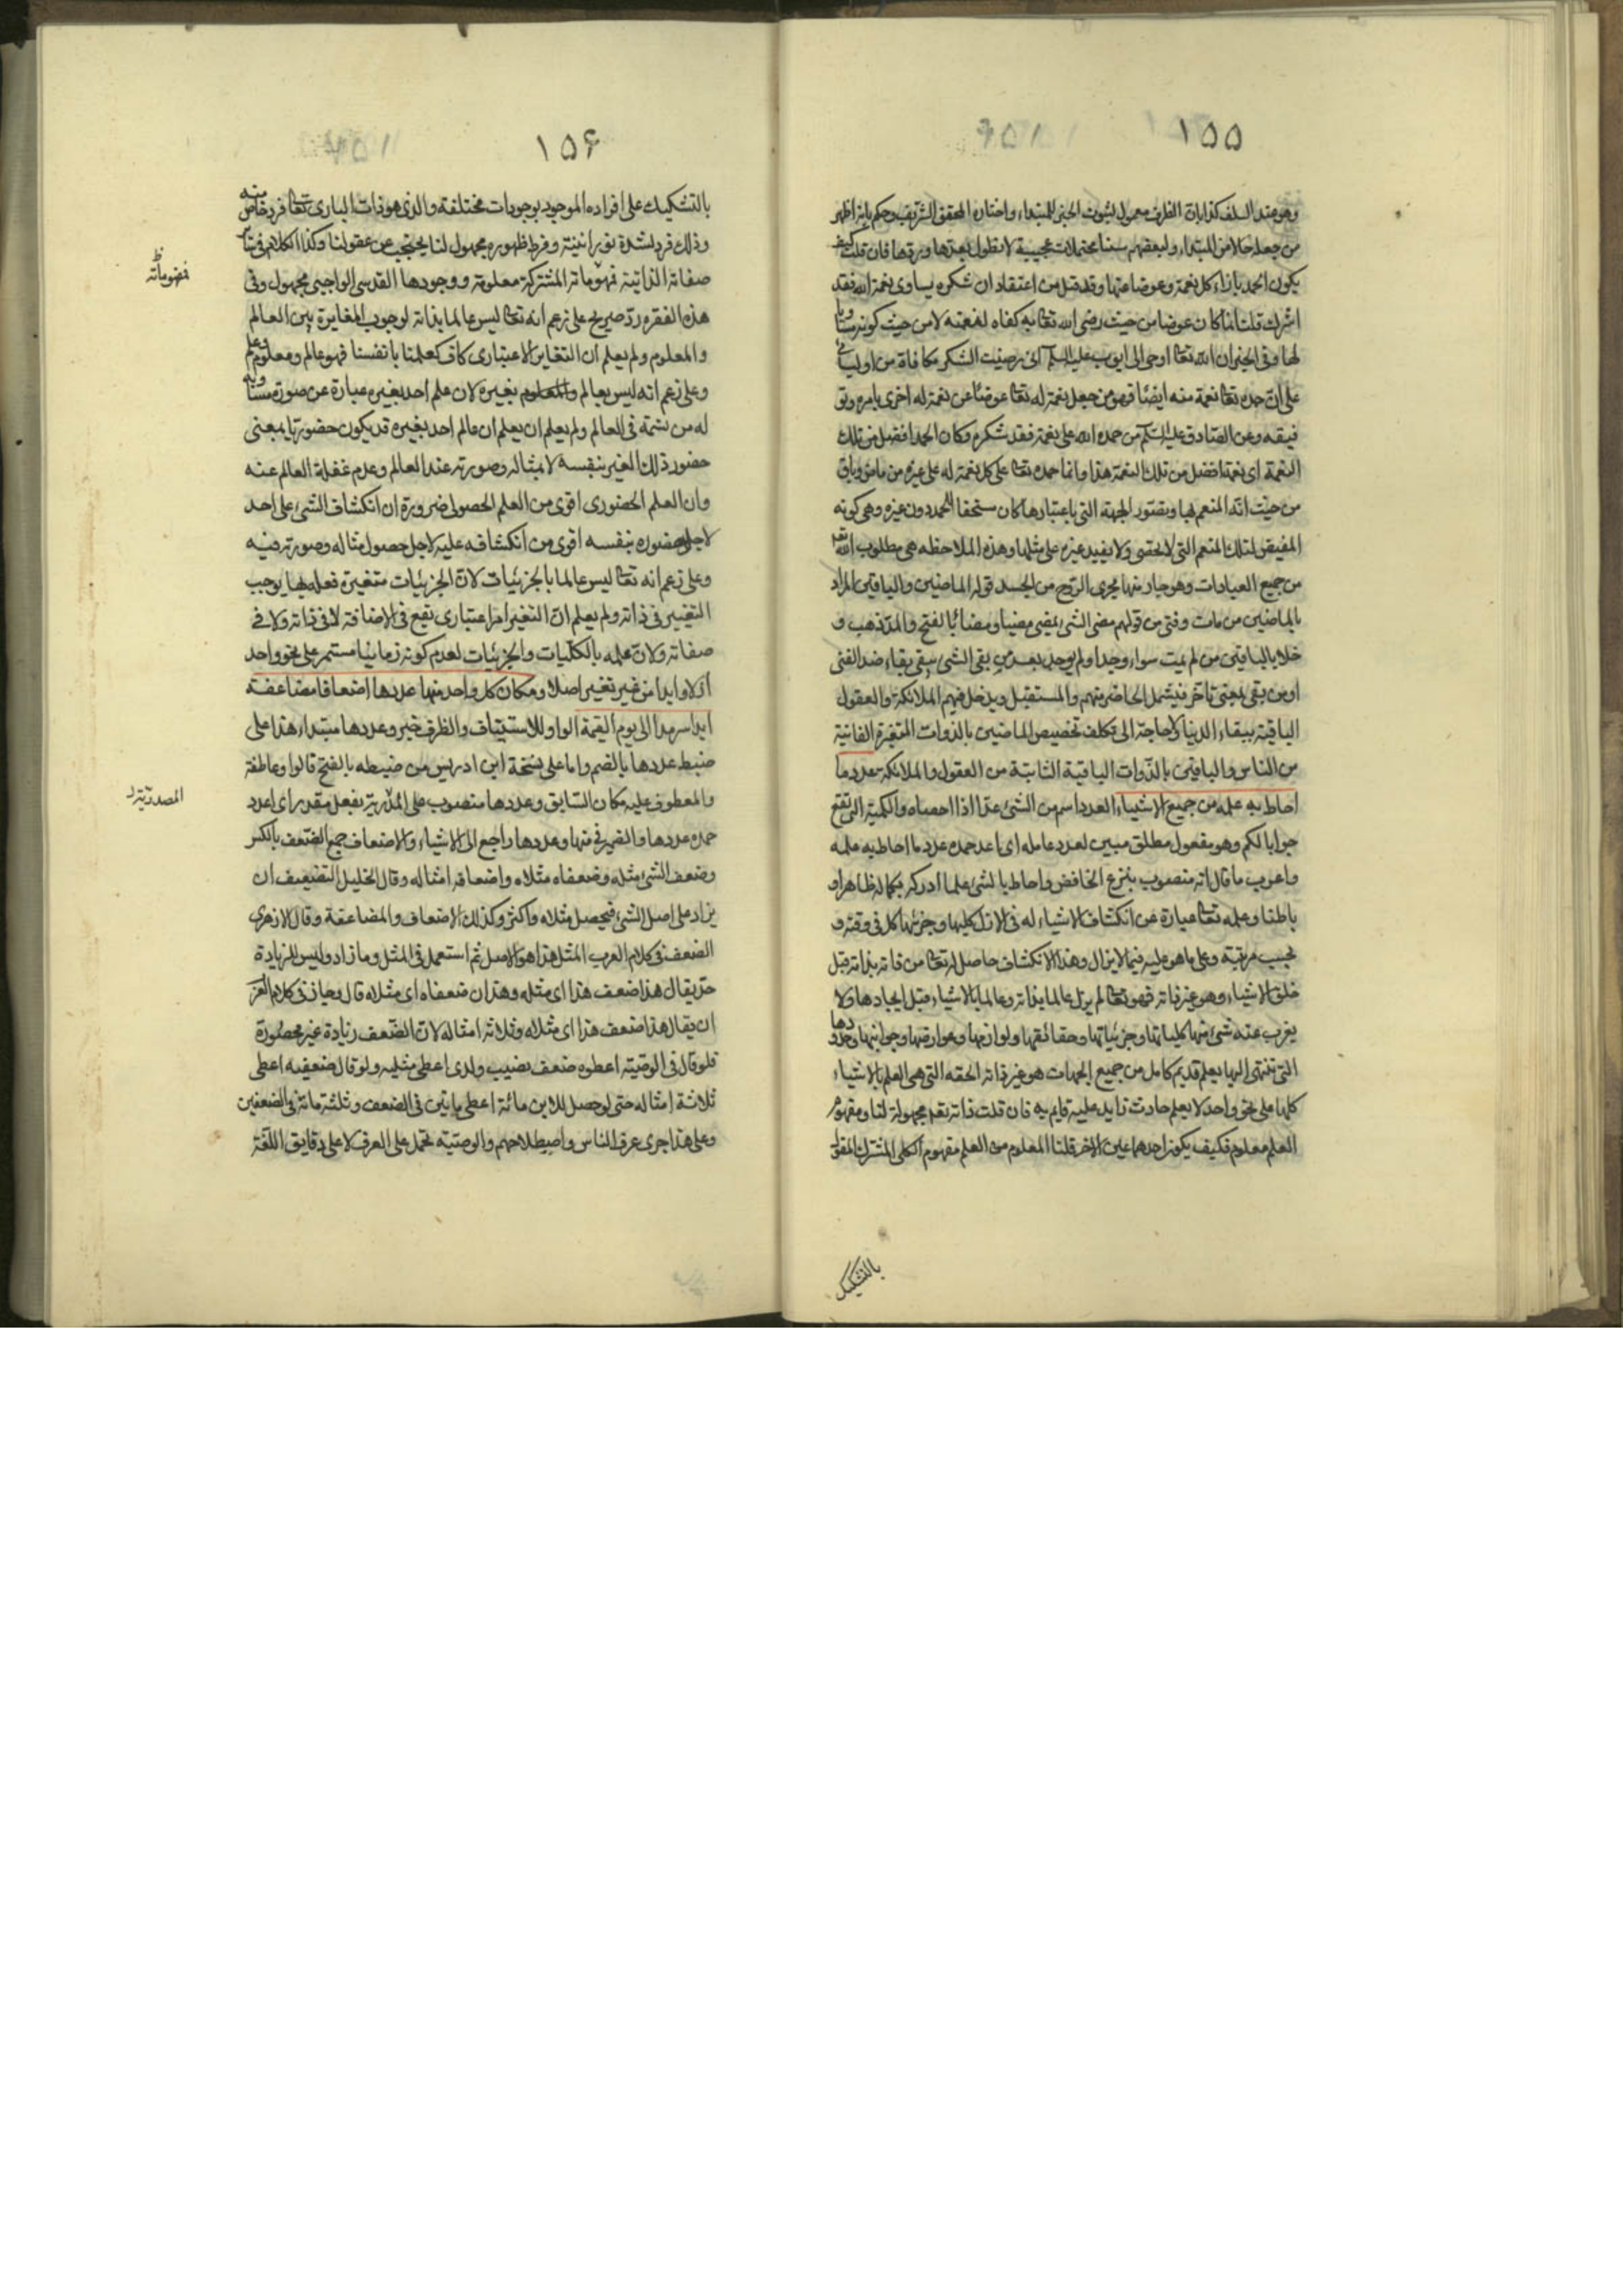 ١٥٥
وهو عند السلف كذا بان الظرف معمول لثبوت الخبر للمبتداء واختار المحقق الشريف وحكم بانه اظهر
من جعله حالا من المبتداء ولبعضهم هنا محتملات عجيبة لا نطول بعدها وردها فان قلت كيف
يكون الحمد بازاء كل نعمة وعوضا عنها وقد قيل من اعتقد ان شكره يساوى نعمة الله فقد
اشرك قلت انما كان عوضا من حيث رضى الله تعا به كفاء لنعمته لا من حيث كونه مساويا
لها وفى الخبر ان الله تعا اوحى الى ايوب عليه السلم انى رضيت الشكر مكافاة من اوليائى
على ان حمده تعا نعمة منه ايضا فهو من جعل نعمة له تعا عوضا عن نعمة له اخرى بامره وتو
فيقه وعن الصادق عليه السلم من حمد الله على نعمة فقد شكره وكان الحمد افضل من تلك
النعمة اى نعمة افضل من تلك النعمة هذا وانما حمده تعا على كل نعمة له على غيره من ماض وباق
من حيث انه المنعم بها وبتصور الجهة التى باعتبارها كان مستحقا للحمد دون غيره وهى كونه
المفيض لتلك النعم التى لا تحصى ولا يفيد غيره على مثلها وهذه الملاحظه هى مطلوب الله تعا
من جميع العبادات وهو جار منها مجرى الروح من الجسد قوله الماضين والباقين المراد
بالماضين من مات وفنى من قولهم مضى الشئ يمضى مضيا ومضاء بالفتح والمد ذهب و
خلا بالباقين من لم يمت سواء وجد او لم يوجد بعد من بقى الشئ يبقى بقاء ضد الفنى
او من بقى بمعنى تاخر فيشمل الحاضر منهم والمستقبل ويدخل فيهم الملائكة والعقول
الباقية ببقاء الدنيا لا حاجة الى تكلف تخصيص الماضين بالذوات المتغيرة الفانية
من الناس والباقين بالذوات الباقية الثابتة من العقول والملائكة عدد ما
احاط به علمه من جميع الاشياء العدد اسم من الشئ عدا اذا احصاه والكمية التى تقع
جوابا لكم وهو مفعول مطلق مبين لعدد عامله اى اعد حمده عدد ما احاط به علمه
واعرب ما قال انه منصوب بنزع الخافض واحاط بالشئ علما ادركه بكماله ظاهرا و
باطنا وعلمه تعا عبارة عن انكشاف الاشياء له فى الازل كليها وجزئيها كل فى وقته و
بحسب مرتبته وعلى ما هو عليه فيما لا يزال وهذا الانكشاف حاصل له تعا من ذاته بذاته قبل
خلق الاشياء وهو عين ذاته فهو تعا لم يزل عالما بذاته وعالما بالاشياء قبل ايجادها ولا
يعزب عنه شئ منها كلياتها وجزئياتها وحقائقها ولوازمها وعوارضها وجوانبها وحدودها
التى تنتهى اليها بعلم قديم كامل من جميع الجهات هو عين ذاته الحقه التى هى العلم بالاشياء
كلها على نحو واحد لا بعلم حادث زايد عليه قايم به فان قلت ذاته تعا مجهولة لنا ومفهوم
العلم معلوم فكيف يكون احدهما عين الاخر قلنا المعلوم من العلم مفهوم الكلى المشترك المقول
بالتشكيك
١٥۶
بالتشكيك على افراده الموجود بوجودات مختلفة والذى هو ذات البارى تعا فرد خاص منه
وذلك فرد لشدة نورانيته وفرط ظهوره مجهول لنا محتجب عن عقولنا وكذا الكلام فى سائر
صفاته الذاتية فمفهوماته المشتركة معلومة ووجودها القدسى الواجبى مجهول وفى
هذه الفقره رد صريح على زعم انه تعا ليس عالما بذاته لوجوب المغايرة بين العالم
والمعلوم ولم يعلم ان التغاير الاعتبارى كاف كعلمنا بانفسنا فهو عالم ومعلوم وعلم
وعلى زعم انه ليس بعالم بغيره لان علم احد بغيره عبارة عن صورة مساوية
له مرتسمة فى العالم ولم يعلم ان يعلم ان عالم احد بغيره قد يكون حضوريا بمعنى
حضور ذلك الغير بنفسه لا بمثاله وصورته عند العالم وعدم غفلة العالم عنه
وان العلم الحضورى اقوى من العلم الحصولى ضرورة ان انكشاف الشئ على احد
لاجل حضوره بنفسه اقوى من انكشافه عليه لاجل حصول مثاله وصورته فيه
وعلى زعم انه تعا ليس عالما بالجزئيات لان الجزئيات متغيرة فعلمه بها يوجب
التغيير فى ذاته ولم يعلم ان التغير امر اعتبارى تقع فى الاضافة لا فى ذاته ولا فى
صفاته ولان علمه بالكليات والجزئيات لعدم كونه زمانيا مستمر على نحو واحد
ازلا وابدا من غير تغير اصلا ومكان كل واحد منها عددها اضعافا مضاعفة
ابدا سرمدا الى يوم القيمة الواو للاستيناف والظرف خبر وعددها مبتداء هذا على
ضبط عددها بالضم واما على نسخة ابن ادريس من ضبطه بالفتح قالوا وعاطفة
والمعطوف عليه مكان السابق وعددها منصوب على المدرية بفعل مقدر اى اعدد
حمده عددها والضمير فى منها وعددها راجع الى الاشياء والاضعاف جمع الضعف بالكسر
وضعف الشئ مثله وضعفاه مثلاه واضعافه امثاله وقال الخليل التضعيف ان
يزاد على اصل الشئ فيحصل مثلاه واكثر وكذلك الاضعاف والمضاعفة وقال الازهرى
الضعف فى كلام العرب المثل هذا هو الاصل ثم استعمل فى المثل وما زاد وليس للزيادة
حد يقال هذا ضعف هذا اى مثله وهذان ضعفاه اى مثلاه قال وجاز فى كلام العرب
ان يقال هذا ضعف هذا اى مثلاه وثلاثة امثاله لان الضعف زيادة غير محصورة
فلو قال فى الوصية اعطوه ضعف نصيب ولدى اعطى مثليه ولو قال ضعفيه اعطى
ثلاثة امثاله حتى لو حصل للابن مائة اعطى مايتين فى الضعف وثلثمائة فى الضعفين
وعلى هذا جرى عرف الناس واصطلاحهم والوصية تحمل على العرف لا على دقايق اللغة
المصدرية